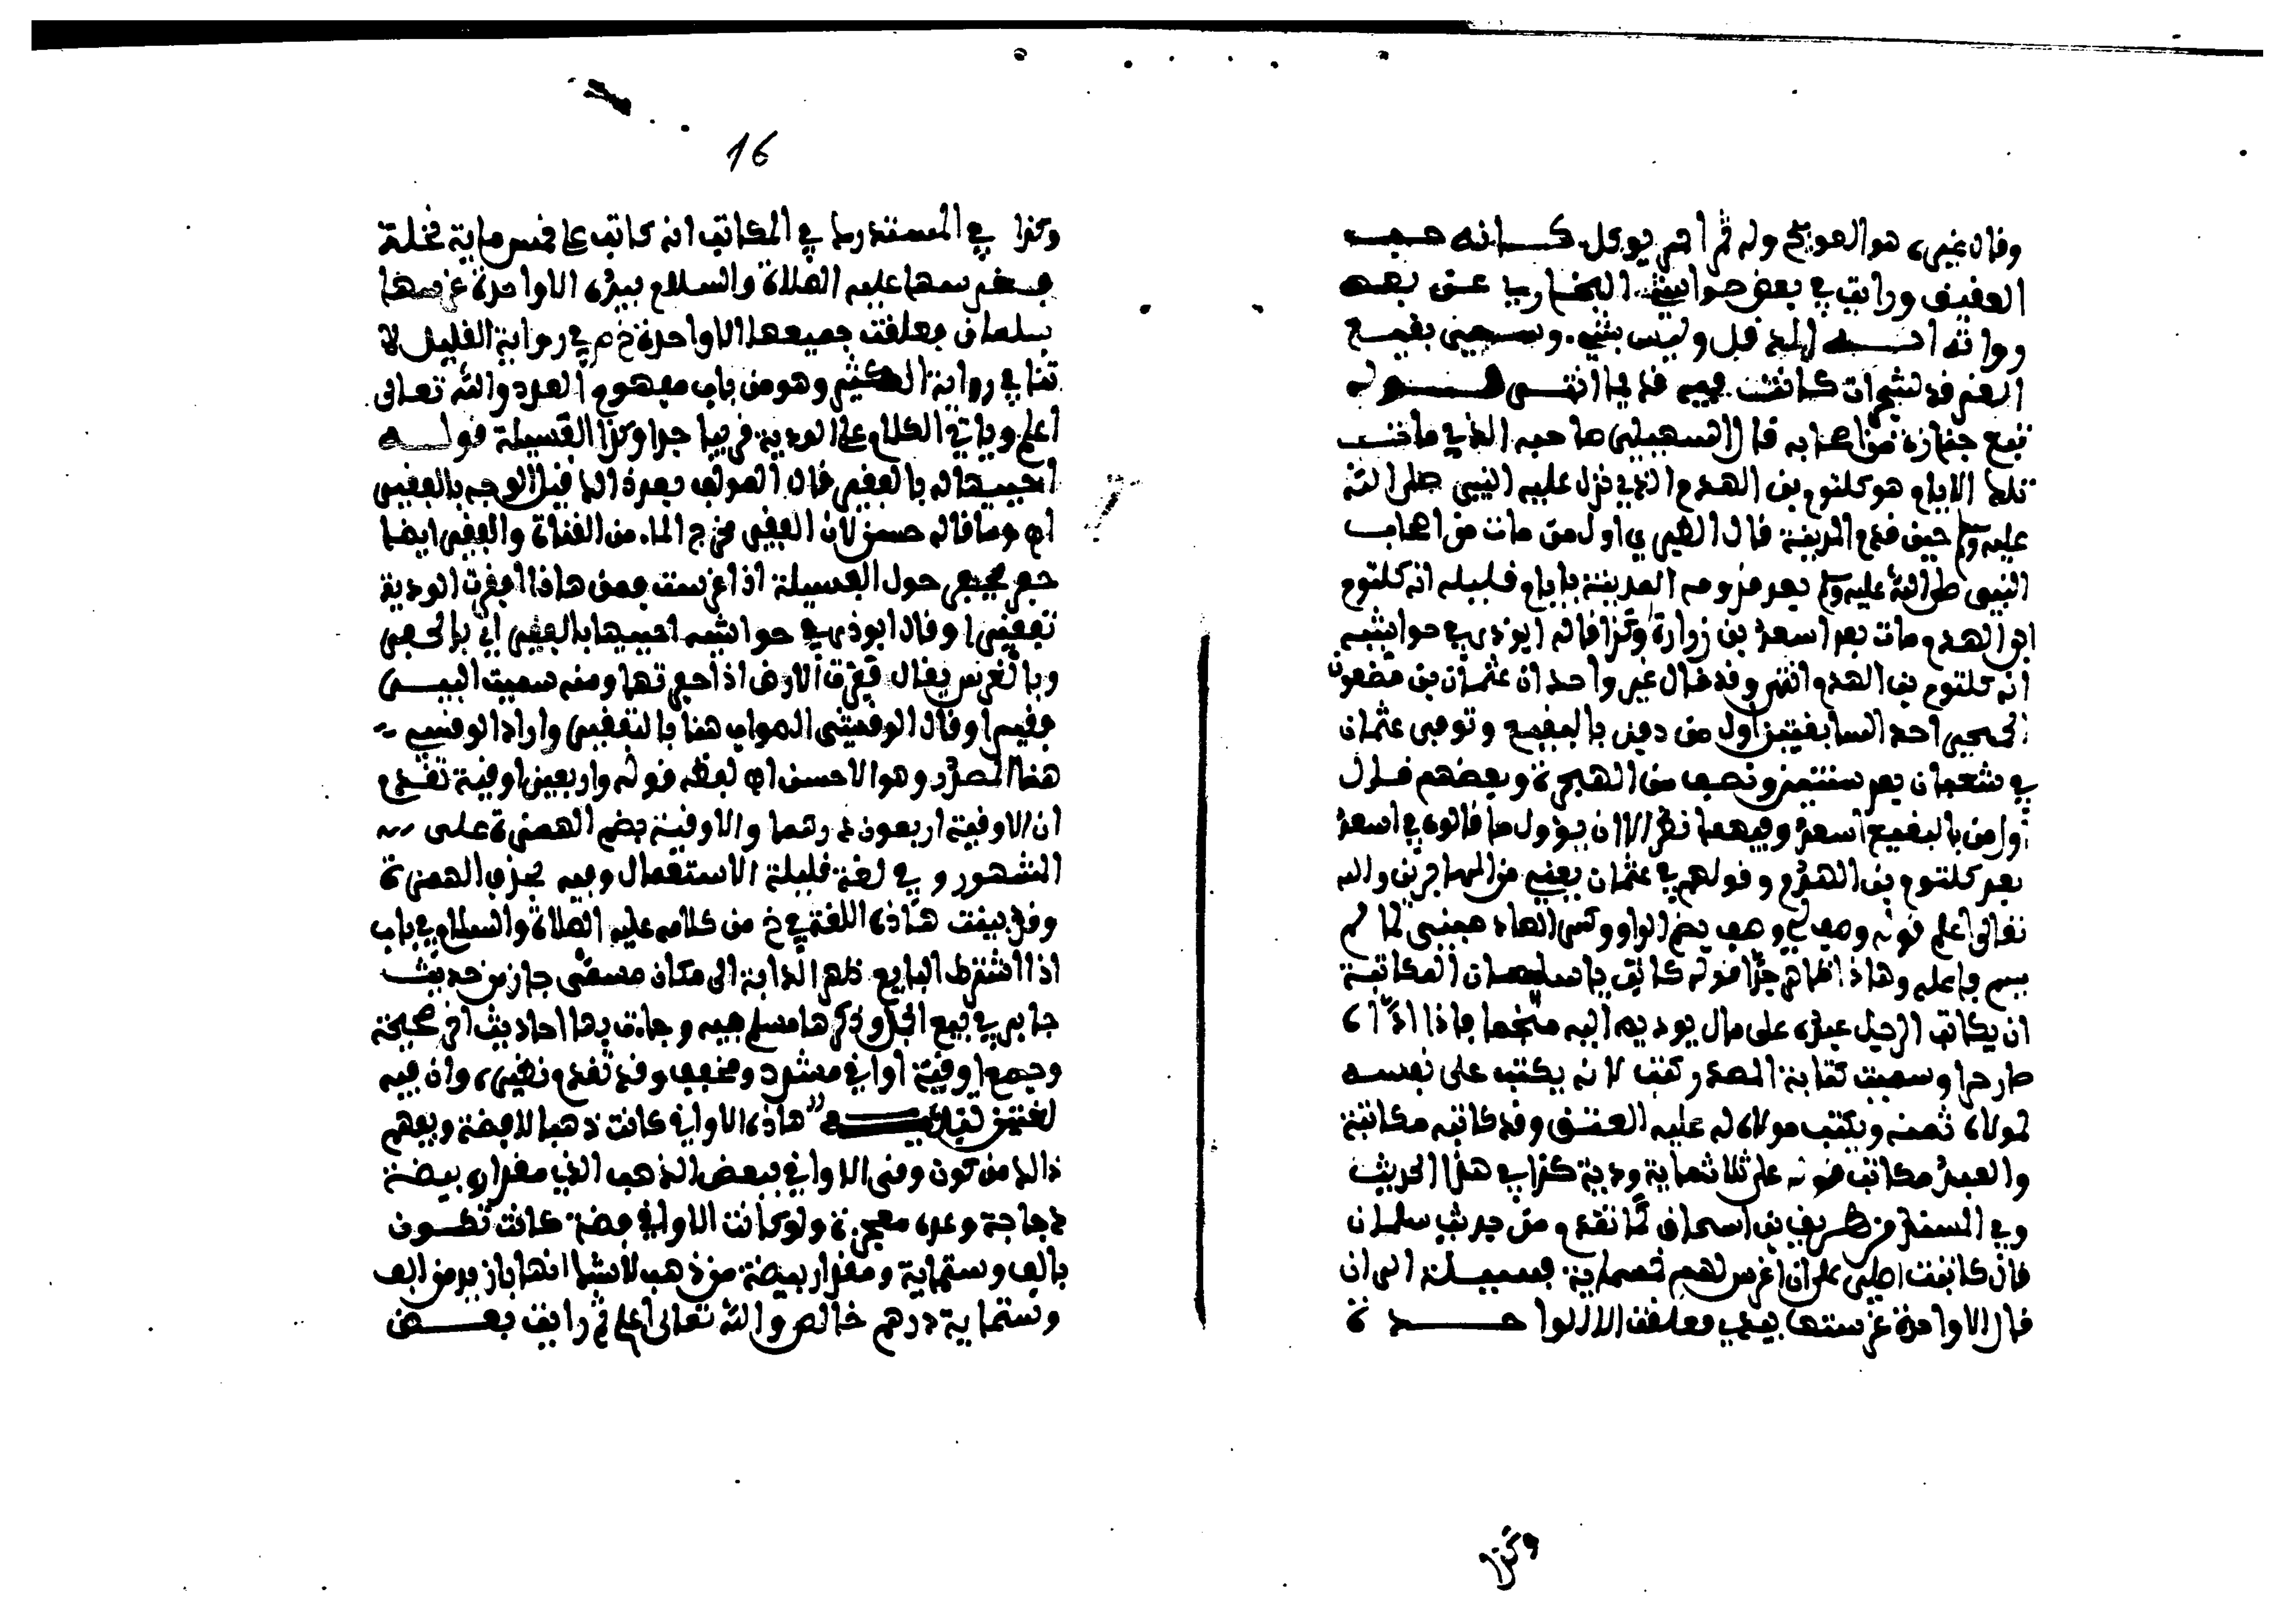 وقال غيره هو العوسج وله ثمر احمر يوكل كانه حب
العقيق ورايت في بعض حواشي البخاري عن بعض
رواته انه المذ قبل وليس بشيء وسمي بقيع
الغرقد لشجرات كانت فيه قديما انتهى قوله
تبع جنازة من اصحابه قال السهيلي صاحبه الذي مات
تلك الايام هو كلثوم بن الهدم الذي نزل عليه النبي صلى الله
عليه وسلم حين قدم المدينة قال الطبري اول من مات من اصحاب
النبي صلى الله عليه وسلم بعد قدومه المدينة بايام قليلة انه كلثوم
ابن الهدم ومات بعد اسعد بن زرارة وكذا قاله ابو ذر في حواشيه
انه كلثوم بن الهدم انتهى وقد قال غير واحد ان عثمان بن مضعون
الجمحي احد السابقين اول من دفن بالبقيع وتوفي عثمان
في شعبان بعد سنتين ونصف من الهجرة وبعضهم قال
اول من بالبقيع اسعد وفيهما نظر الا ان يؤول ما قالوه في اسعد
بعد كلثوم بن الهدم وقولهم في عثمان يعني من المهاجرين والله
تعالى اعلم قوله وصف لي وصف بضم الواو وكسر الصاد مبني لما لم
يسم فاعله وهاذا ظاهر جدا قوله كاتب يا سلمان المكاتبة
ان يكاتب الرجل عبده على مال يوديه اليه منجما فاذا اداه
صار حرا وسميت كتابة المصدر كتب لانه يكتب على نفسه
لمولاه ثمنه ويكتب مولاه له عليه العتق وقد كاتبه مكاتبة
والعبد مكاتب قوله على ثلاثماية ودية كذا في هذا الحديث
وفي المسند من طريف بن اسحاق كما تقدم ومن حديث سلمان
قال كاتبت اهلي على ان اغرس لهم خمسماية فسيلة الى ان
قال الا واحدة غرستها بيدي فعلقن الا الواحدة
وكذا
16
وكذا في المستدرك في المكاتب انه كاتب على خمس ماية نخلة
فغرسها عليه الصلاة والسلام بيده الا واحدة غرسها
سلمان فعلقت جميعها الا واحدة خ م في رواية القليل لا
تنافي رواية الكثير وهو من باب مفهوم العدد والله تعالى
اعلم وياتي الكلام على الودية قريبا جدا وكذا الفسيلة قوله
احييها له بالفقير قال المولف بعد هذا قيل الوجه بالتفقير
اه وما قاله حسن لان الفقير مخرج الماء من القناة والفقير ايضا
حفر يحفر حول الفسيلة اذا غرست فمن هاذا افقرت الودية
تفقيرا وقال ابو ذر في حواشيه احييها بالفقير اي بالحفر
وبالغرس يقال فقرت الارض اذا حفرتها ومنه سميت البير
فقيرا وقال الوقشي الصواب هنا بالتفقير واراد الوقشي
هنا المصدر وهو الاحسن اه لفظه قوله واربعين اوقية تقدم
ان الاوقية اربعون درهما والاوقية بضم الهمزة على
المشهور وفي لغة قليلة الاستعمال وقيه بحذف الهمزة
وقد بينت هاذه اللغة في خ من كلامه عليه الصلاة والسلام في باب
اذا اشترط البايع ظهر الدابة الى مكان مسمى جاز من حديث
جابر في بيع الجمل وذكرها مسلم فيه وجاءت بها احاديث اخر صحيحة
وجمع اوقية اواقي مشدد ومخفف وقد تقدم نظيره وان فيه
لغتين هاذه الاواقي كانت ذهبا لا فضة ويفهم
ذالك من كون وفى الاواقي ببعض الذهب الذي مقداره بيضة
دجاجة وعده معجزة ولو كانت الاواقي فضة كانت تكون
بالف وستماية ومقدار بيضة من ذهب لا شك انها بازيد من الف
وستماية درهم خالص والله تعالى اعلم ثم رايت بعض